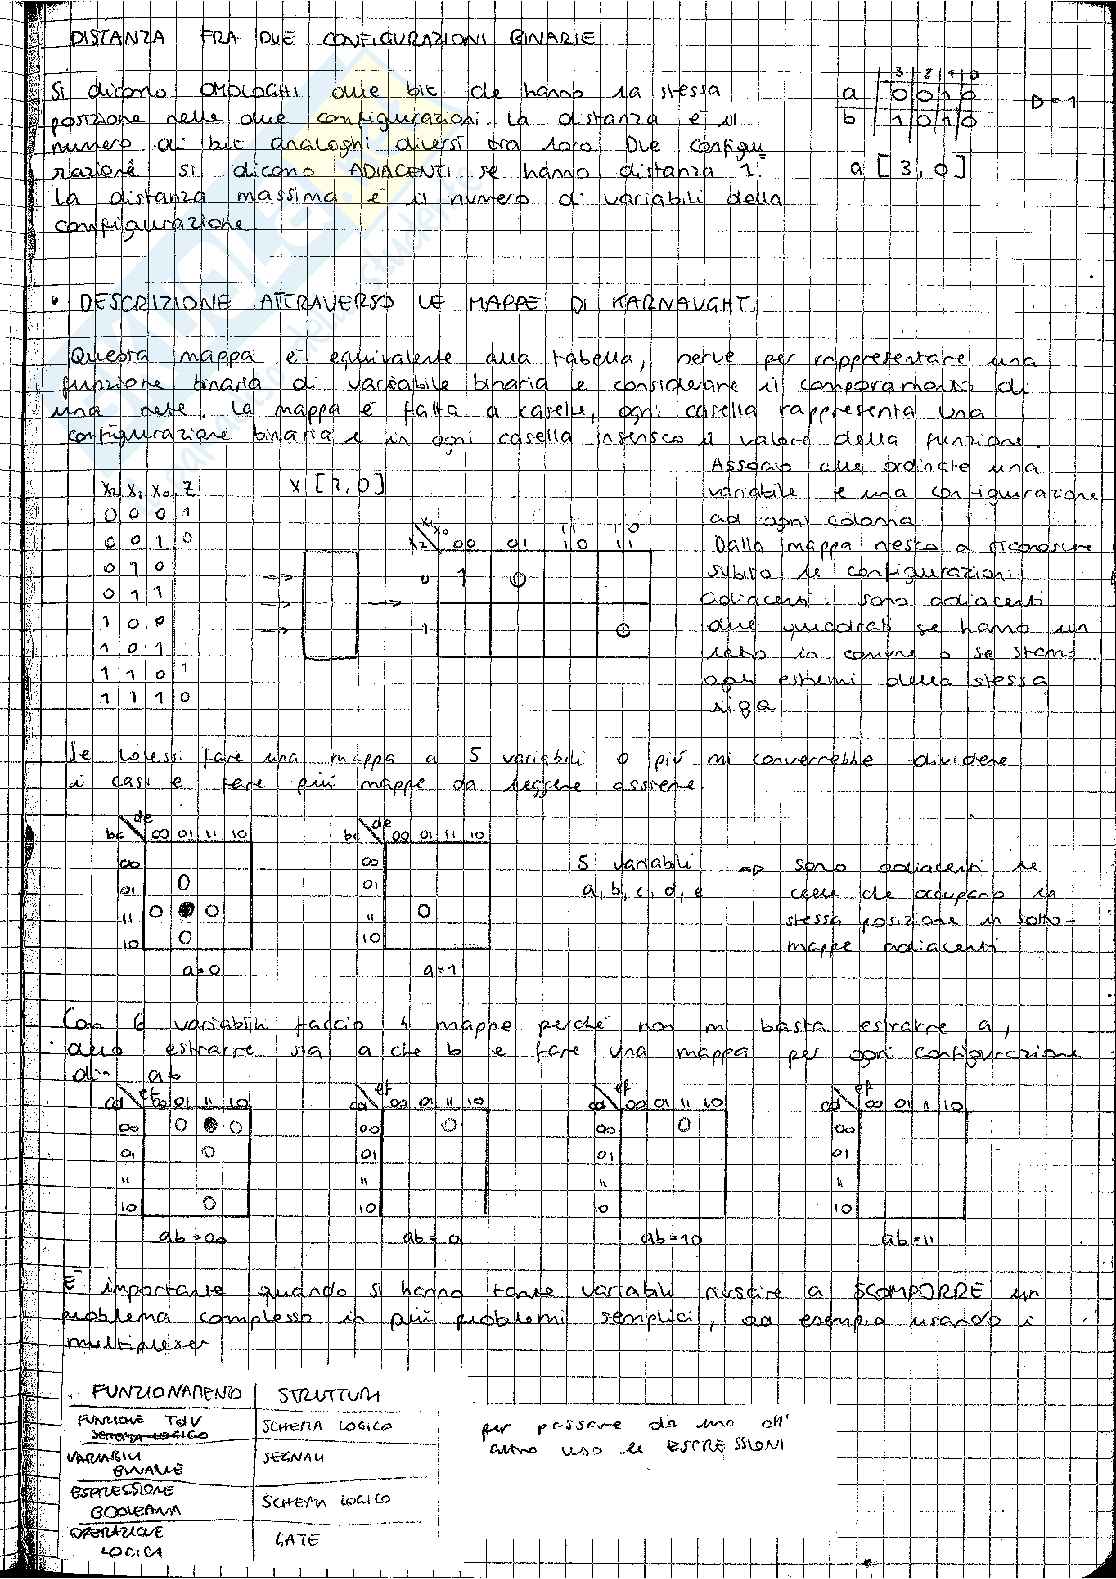 DISTANZA FRA DUE CONFIGURAZIONI BINARIE
Si dicono OMOLOGHI due bit che hanno la stessa
posizione nelle due configurazioni. La distanza è il
numero di bit analoghi diversi tra loro. Due configu
razioni si dicono ADIACENTI se hanno distanza 1.
La distanza massima è il numero di variabili della
configurazione
3 2 1 0
a 0 0 1 0
b 1 0 1 0
D=1
a [3,0]
• DESCRIZIONE ATTRAVERSO LE MAPPE DI KARNAUGHT
Questa mappa è equivalente alla tabella, serve per rappresentare una
funzione binaria di variabile binaria e considerare il comportamento di
una rete. La mappa è fatta a caselle, ogni casella rappresenta una
configurazione binaria e in ogni casella inserisco il valore della funzione.
Associo alle ordinate una
variabile e una configurazione
ad ogni colonna
Dalla mappa riesco a riconoscere
subito le configurazioni
adiacenti. Sono adiacenti
due quadrati se hanno un
lato in comune o se stanno
agli estremi della stessa
riga
X2 X1 X0 Z
0 0 0 1
0 0 1 0
0 1 0
0 1 1
1 0 0
1 0 1
1 1 0 1
1 1 1 0
X [2,0]
X1 X0
X2 00 01 10 11
11 10
0 1 0
1 0
Se volessi fare una mappa a 5 variabili o più mi converrebbe dividere
i casi e fare più mappe da leggere assieme
de
bc 00 01 11 10
00
01 0
11 0 0
10 0
a=0
de
bc 00 01 11 10
00
01
11 0
10
a=1
5 variabili
a, b, c, d, e
⇒ sono adiacenti le
celle che occupano la
stessa posizione in sotto-
mappe adiacenti
Con 6 variabili faccio 4 mappe perché non mi basta estrarre a,
devo estrarre sia a che b e fare una mappa per ogni configurazione
di ab
ef
cd 00 01 11 10
00 0 0
01 0
11
10 0
ab=00
ef
cd 00 01 11 10
00 0
01
11
10
ab= 0
ef
cd 00 01 11 10
00 0
01
11
0
ab=10
ef
cd 00 01 11 10
00
01
11
10
ab=11
È importante quando si hanno tante variabili riuscire a SCOMPORRE un
problema complesso in più problemi semplici, ad esempio usando i
multiplexer
FUNZIONAMENTO STRUTTURA
FUNZIONE TdV SCHEMA LOGICO
SCHEMA LOGICO
VARIABILI SEGNALI
BINARIE
ESPRESSIONE SCHEMA LOGICO
BOOLEANA
OPERAZIONE GATE
LOGICA
per passare da uno all'
altro uso le ESPRESSIONI